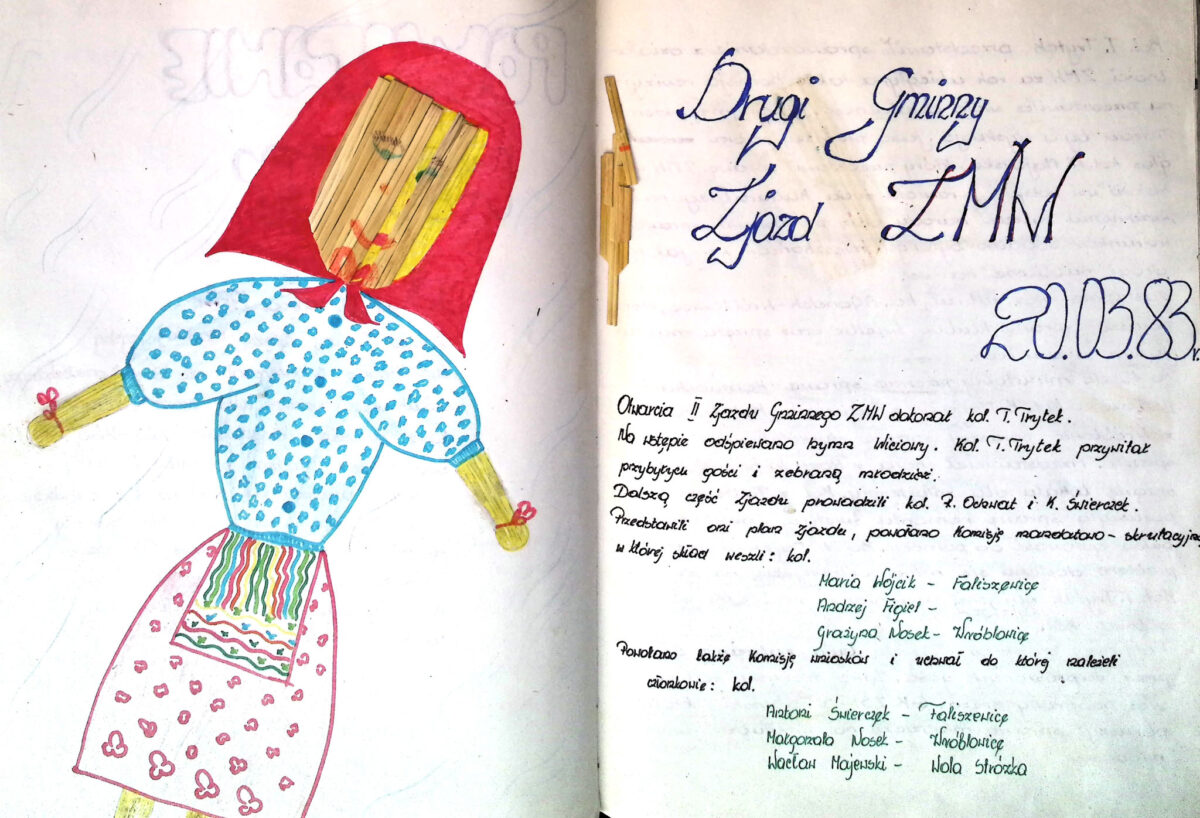 Drugi Gminny
Zjazd ZMW
20.03.83r.
Otwarcia II Zjazdu Gminnego ZMW dokonał kol. T. Trytek.
Na wstępie odśpiewano hymn Wiciowy. Kol. T. Trytek przywitał
przybyłych gości i zebraną młodzież.
Dalszą część Zjazdu prowadzili kol. Z. Odrwał i K. Świerczek.
Przedstawili oni plan Zjazdu, powołano Komisję mandatowo-skrutacyjną
w której skład weszli: kol.
Maria Wójcik - Faliszewice
Andrzej Figiel -
Grażyna Nosek - Wróblowice
Powołano także Komisję wniosków i uchwał do której należeli
członkowie: kol.
Antoni Świerczek - Faliszewice
Małgorzata Nosek - Wróblowice
Wacław Majewski - Wola Stróska